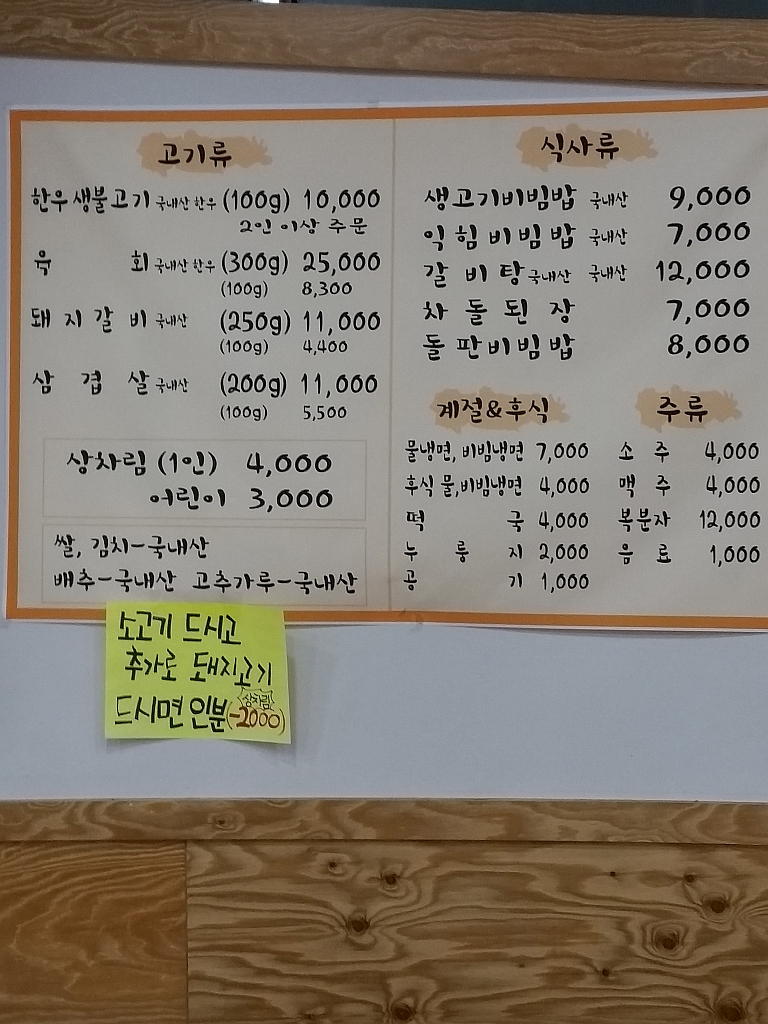 고기류
한우생불고기 국내산 한우 (100g) 10,000
2인 이상 주문
육 회 국내산 한우 (300g) 25,000
(100g) 8,300
돼지갈비 국내산 (250g) 11,000
(100g) 4,400
삼겹살 국내산 (200g) 11,000
(100g) 5,500
상차림 (1인) 4,000
어린이 3,000
쌀, 김치-국내산
배추-국내산 고추가루-국내산
식사류
생고기비빔밥 국내산 9,000
익힘비빔밥 국내산 7,000
갈비탕 국내산 국내산 12,000
차돌된장 7,000
돌판비빔밥 8,000
계절&후식
물냉면, 비빔냉면 7,000
후식 물,비빔냉면 4,000
떡국 4,000
누룽지 2,000
공기 1,000
주류
소주 4,000
맥주 4,000
복분자 12,000
음료 1,000
소고기 드시고
추가로 돼지고기
드시면 인분(상차림 -2000)